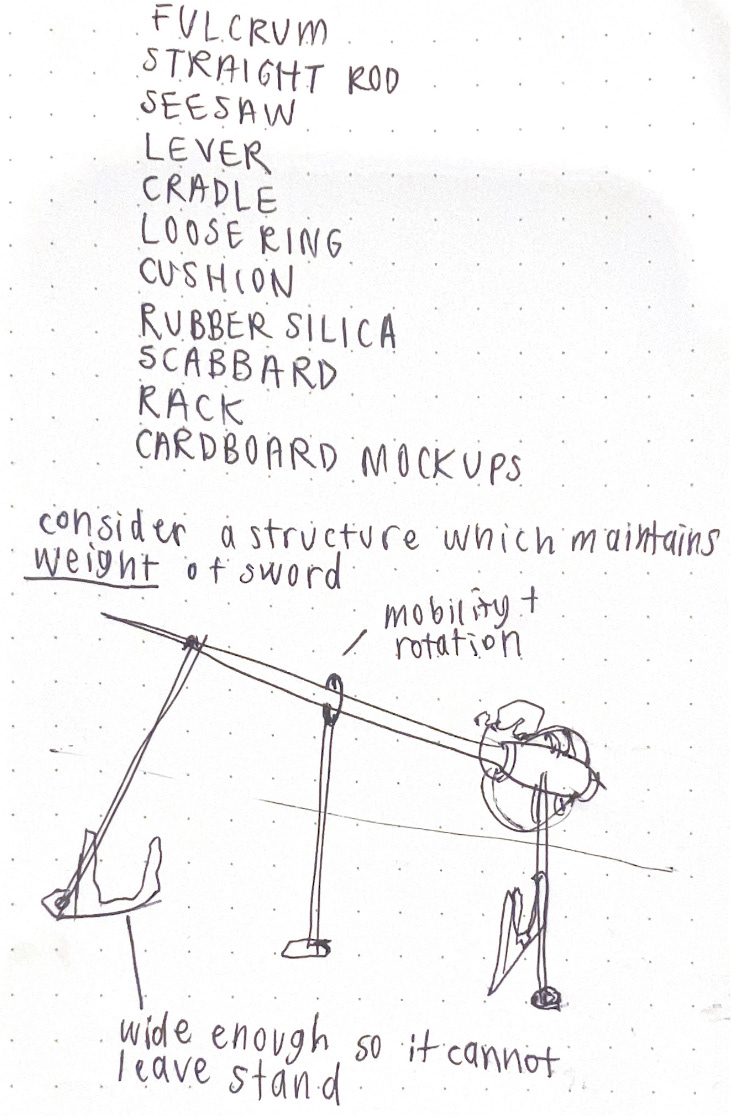 FULCRUM
STRAIGHT ROD
SEESAW
LEVER
CRADLE
LOOSE RING
CUSHION
RUBBER SILICA
SCABBARD
RACK
CARDBOARD MOCKUPS
consider a structure which maintains
weight of sword
mobility +
rotation
wide enough so it cannot
leave stand